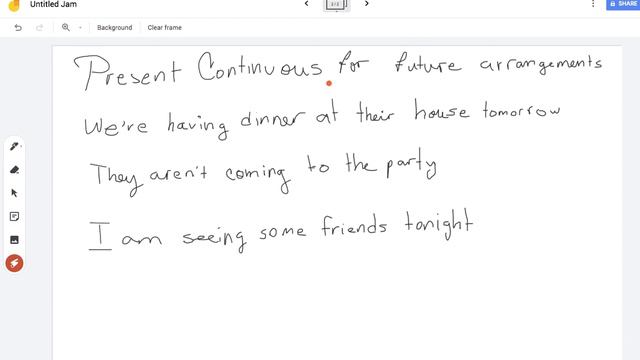 Untitled Jam
2/2
SHARE
Background
Clear frame
Present Continuous for future arrangements
We're having dinner at their house tomorrow
They aren't coming to the party
I am seeing some friends tonight